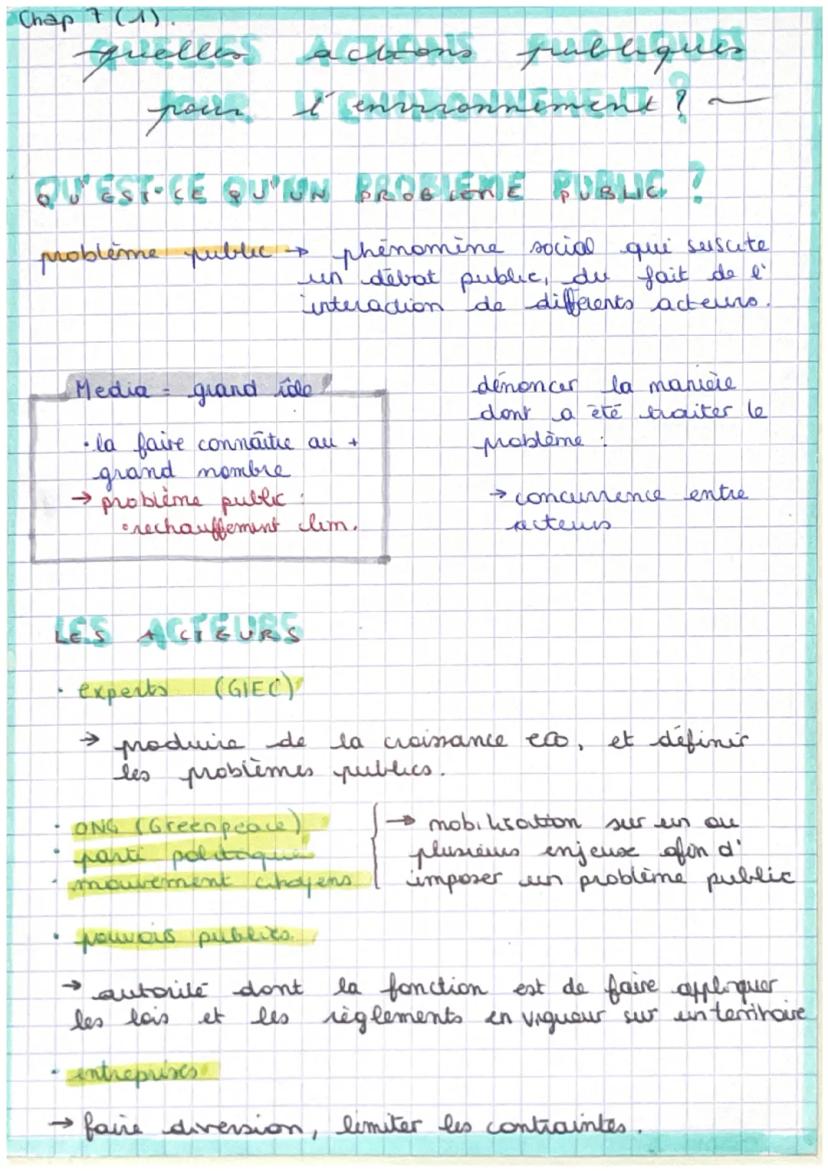 Chap 7 (1).
quelles actions publiques
pour l'environnement ?
QU'EST-CE QU'UN PROBLEME PUBLIC ?
problème public → phénomène social qui suscite
un débat public, du fait de l'
interaction de différents acteurs.
Media = grand rôle !
• la faire connaître au +
grand nombre
→ problème public :
• rechauffement clim.
dénoncer la manière
dont a été traiter le
problème :
→ concurrence entre
acteurs
LES ACTEURS
• experts (GIEC)
→ produire de la croissance eco, et définir
les problèmes publics.
• ONG (Greenpeace)
• parti politique
• mouvement citoyens
→ mobilisation sur un ou
plusieurs enjeux afin d'
imposer un problème public
• pouvoirs publics
→ autorité dont la fonction est de faire appliquer
les lois et les règlements en vigueur sur un territoire
• entreprises
→ faire diversion, limiter les contraintes.